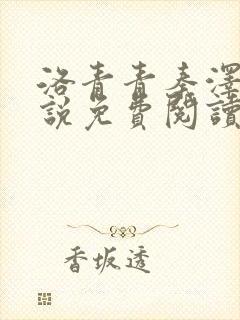 洛青青秦澤
說免費閱讀
香坂透